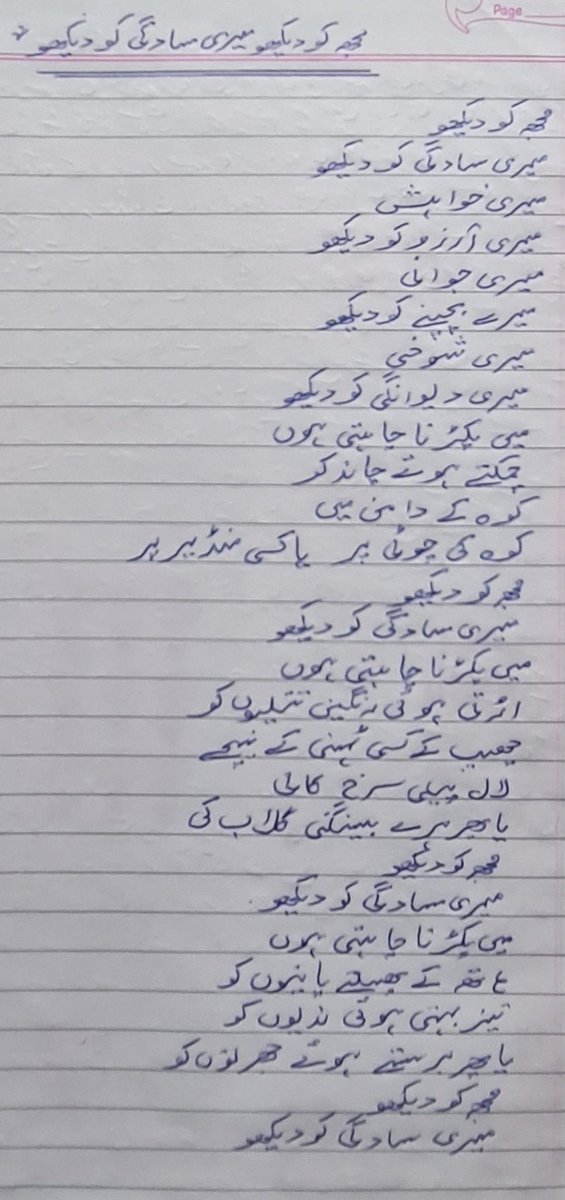 Page
مجھ کو دیکھو میری سادگی کو دیکھو
مجھ کو دیکھو
میری سادگی کو دیکھو
میری خواہش
میری آرزو کو دیکھو
میری جوانی
میرے بچپنے کو دیکھو
میری شوخی
میری دیوانگی کو دیکھو
میں پکڑنا چاہتی ہوں
چمکتے ہوئے چاند کو
کوہ کے دامن میں
کوہ کی چوٹی پر یا کسی منڈیر پر
مجھ کو دیکھو
میری سادگی کو دیکھو
میں پکڑنا چاہتی ہوں
اڑتی ہوئی رنگین تتلیوں کو
چھپ کے کسی ٹہنی کے نیچے
لال پیلی سرخ کالی
یا پھر ہرے بینگنی گلاب کی
مجھ کو دیکھو
میری سادگی کو دیکھو
میں پکڑنا چاہتی ہوں
ہاتھ کے پانیوں کو
تیز بہتی ہوئی ندیوں کو
یا پھر برستے ہوئے جھرنوں کو
مجھ کو دیکھو
میری سادگی کو دیکھو